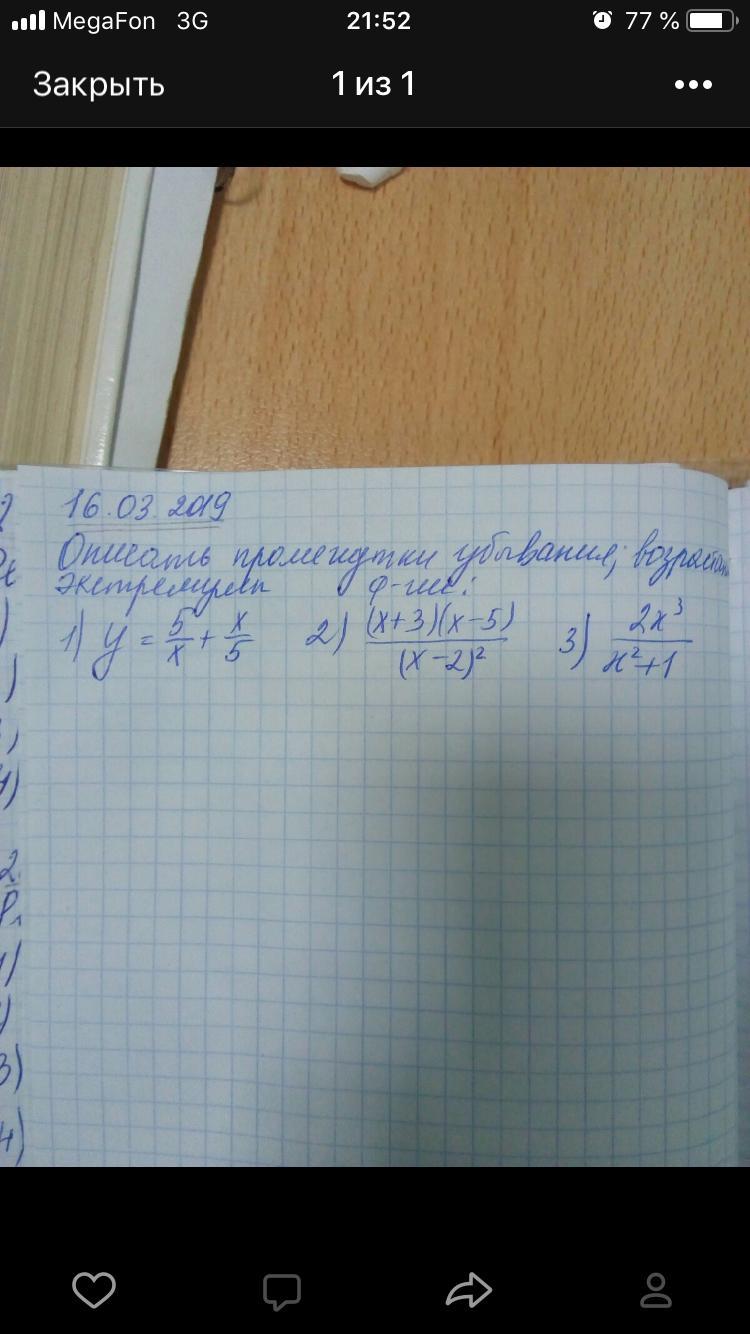 MegaFon 3G 21:52 77 %
Закрыть 1 из 1
16.03.2019
Описать промежутки убывания, возрастан
экстремумы ф-ций:
1) y = 5/x + x/5 2) (x+3)(x-5)/(x-2)² 3) 2x³/x²+1
2
1)
3)
4)